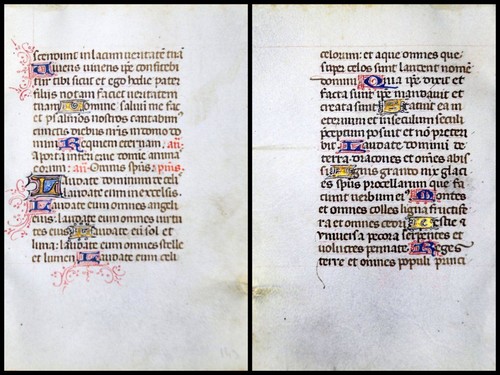 scendunt in lacum veritatē tuā
Vivens vivens ip̄e confitebi
tur tibi sicut et ego hodie pater
filiis notam faciet veritatem
tuam Domine salvū me fac
et psalmos nostros cantabim̄
cunctis diebus in domo do
mini Requiem eternam. añ.
A porta inferi erue dom̄e animā
eorum. añ. Omnis sp̄us. p̄us.
Laudate dominum de celis
laudate eum in excelsis
Laudate eum omnes angeli
eius: laudate eum omnes virtu
tes eius Laudate eū sol et
luna: laudate eum omnes stelle
et lumen Laudate eum celi
celorum: et aque omnes que
super celos sunt laudent nomē
domini Quia ip̄e dixit et
facta sunt ip̄e mandavit et
creata sunt Statuit ea in
eternum et in seculum seculi
p̄ceptum posuit et nō preteri
bit Laudate domini de
terra: dracones et om̄es abis
si Ignis grando nix glaci
es sp̄us procellarum que fa
ciunt verbum ei⁹ Montes
et omnes colles ligna fructife
ra et omnes cedri Bestie &
universa pecora serpentes et
volucres pennate Reges
terre et omnes populi princi